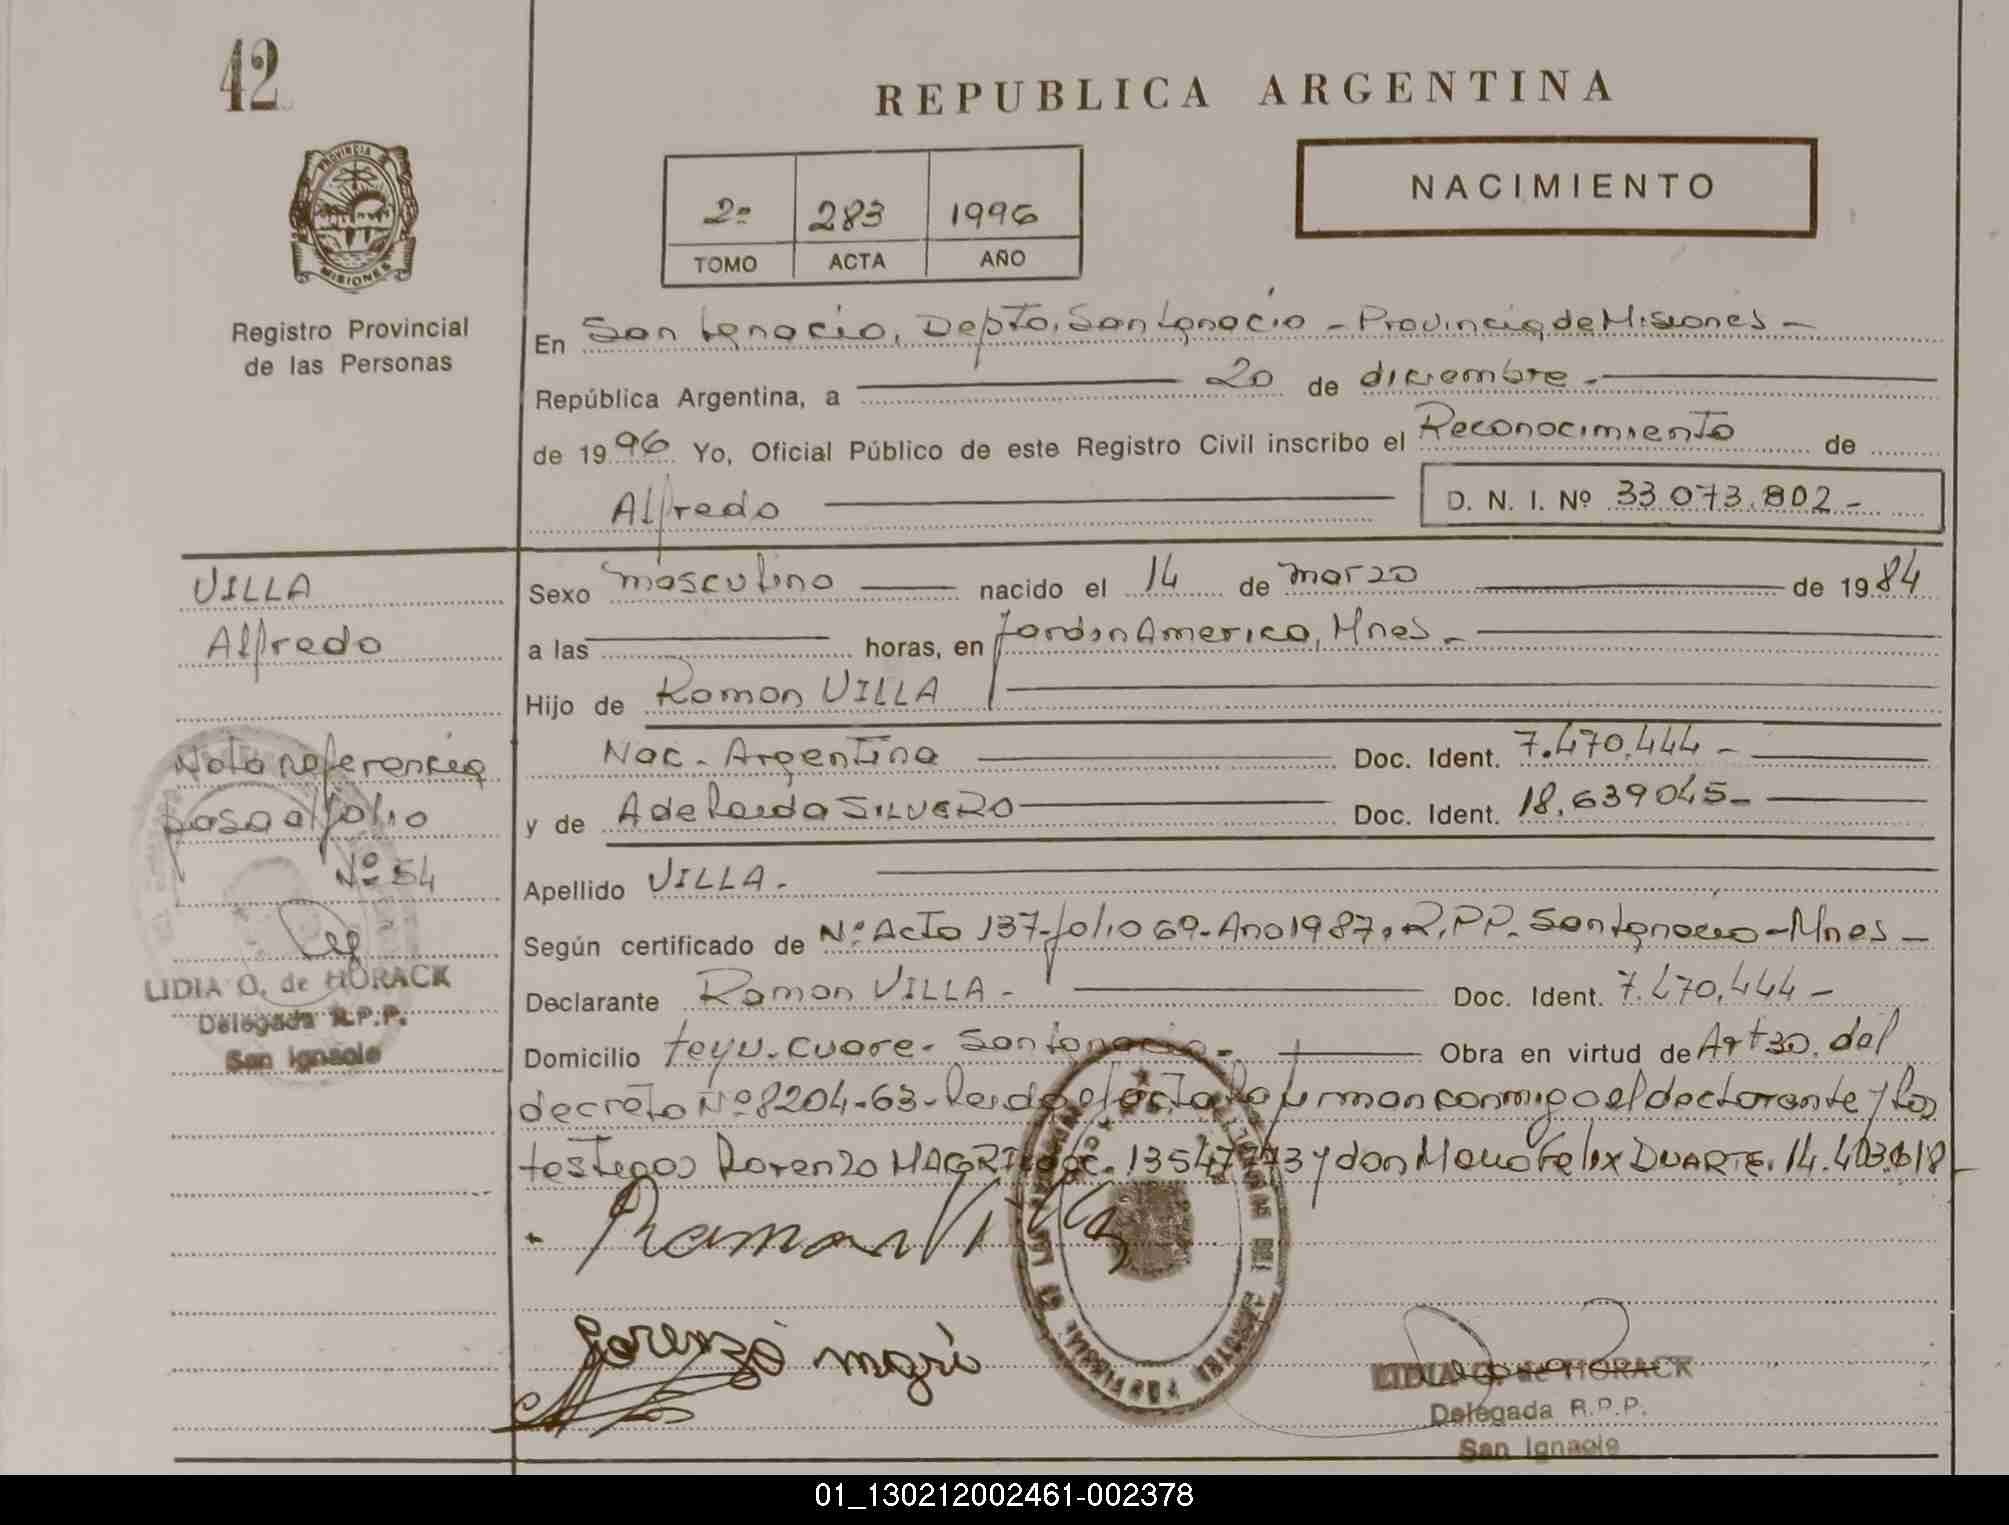 42
REPUBLICA ARGENTINA
NACIMIENTO
2º 283 1996
TOMO ACTA AÑO
PROVINCIA
MISIONES
Registro Provincial
de las Personas
En San Ignacio, Depto, San Ignacio - Provincia de Misiones -
República Argentina, a 20 de diciembre -
de 1996 Yo, Oficial Público de este Registro Civil inscribo el Reconocimiento de
Alfredo
D. N. I. Nº 33.073.802 -
VILLA
Alfredo
Sexo masculino nacido el 14 de marzo de 1984
a las horas, en Jardin America, Mnes -
Hijo de Ramon VILLA
Nac. Argentina Doc. Ident. 7.470.444 -
y de Adelaida SILVERO Doc. Ident. 18.639045 -
Apellido VILLA -
Según certificado de Nº Acta 137 - folio 69 - Año 1987, R.P.P. San Ignacio - Mnes -
Declarante Ramon VILLA - Doc. Ident. 7.470.444 -
Domicilio teyu-cuare - San Ignacio - Obra en virtud de Art 30. del
decreto Nº 8204-63 - leida el acta la firman conmigo el declarante y los
testigos Lorenzo MAGRI y don Felix DUARTE. 14.
Nota referencia
pasa al folio
Nº 54
LIDIA O. de HORACK
Delegada R.P.P.
San Ignacio
Ramon Villa
Lorenzo magri
LIDIA O. de HORACK
Delegada R.P.P.
San Ignacio
01_130212002461-002378